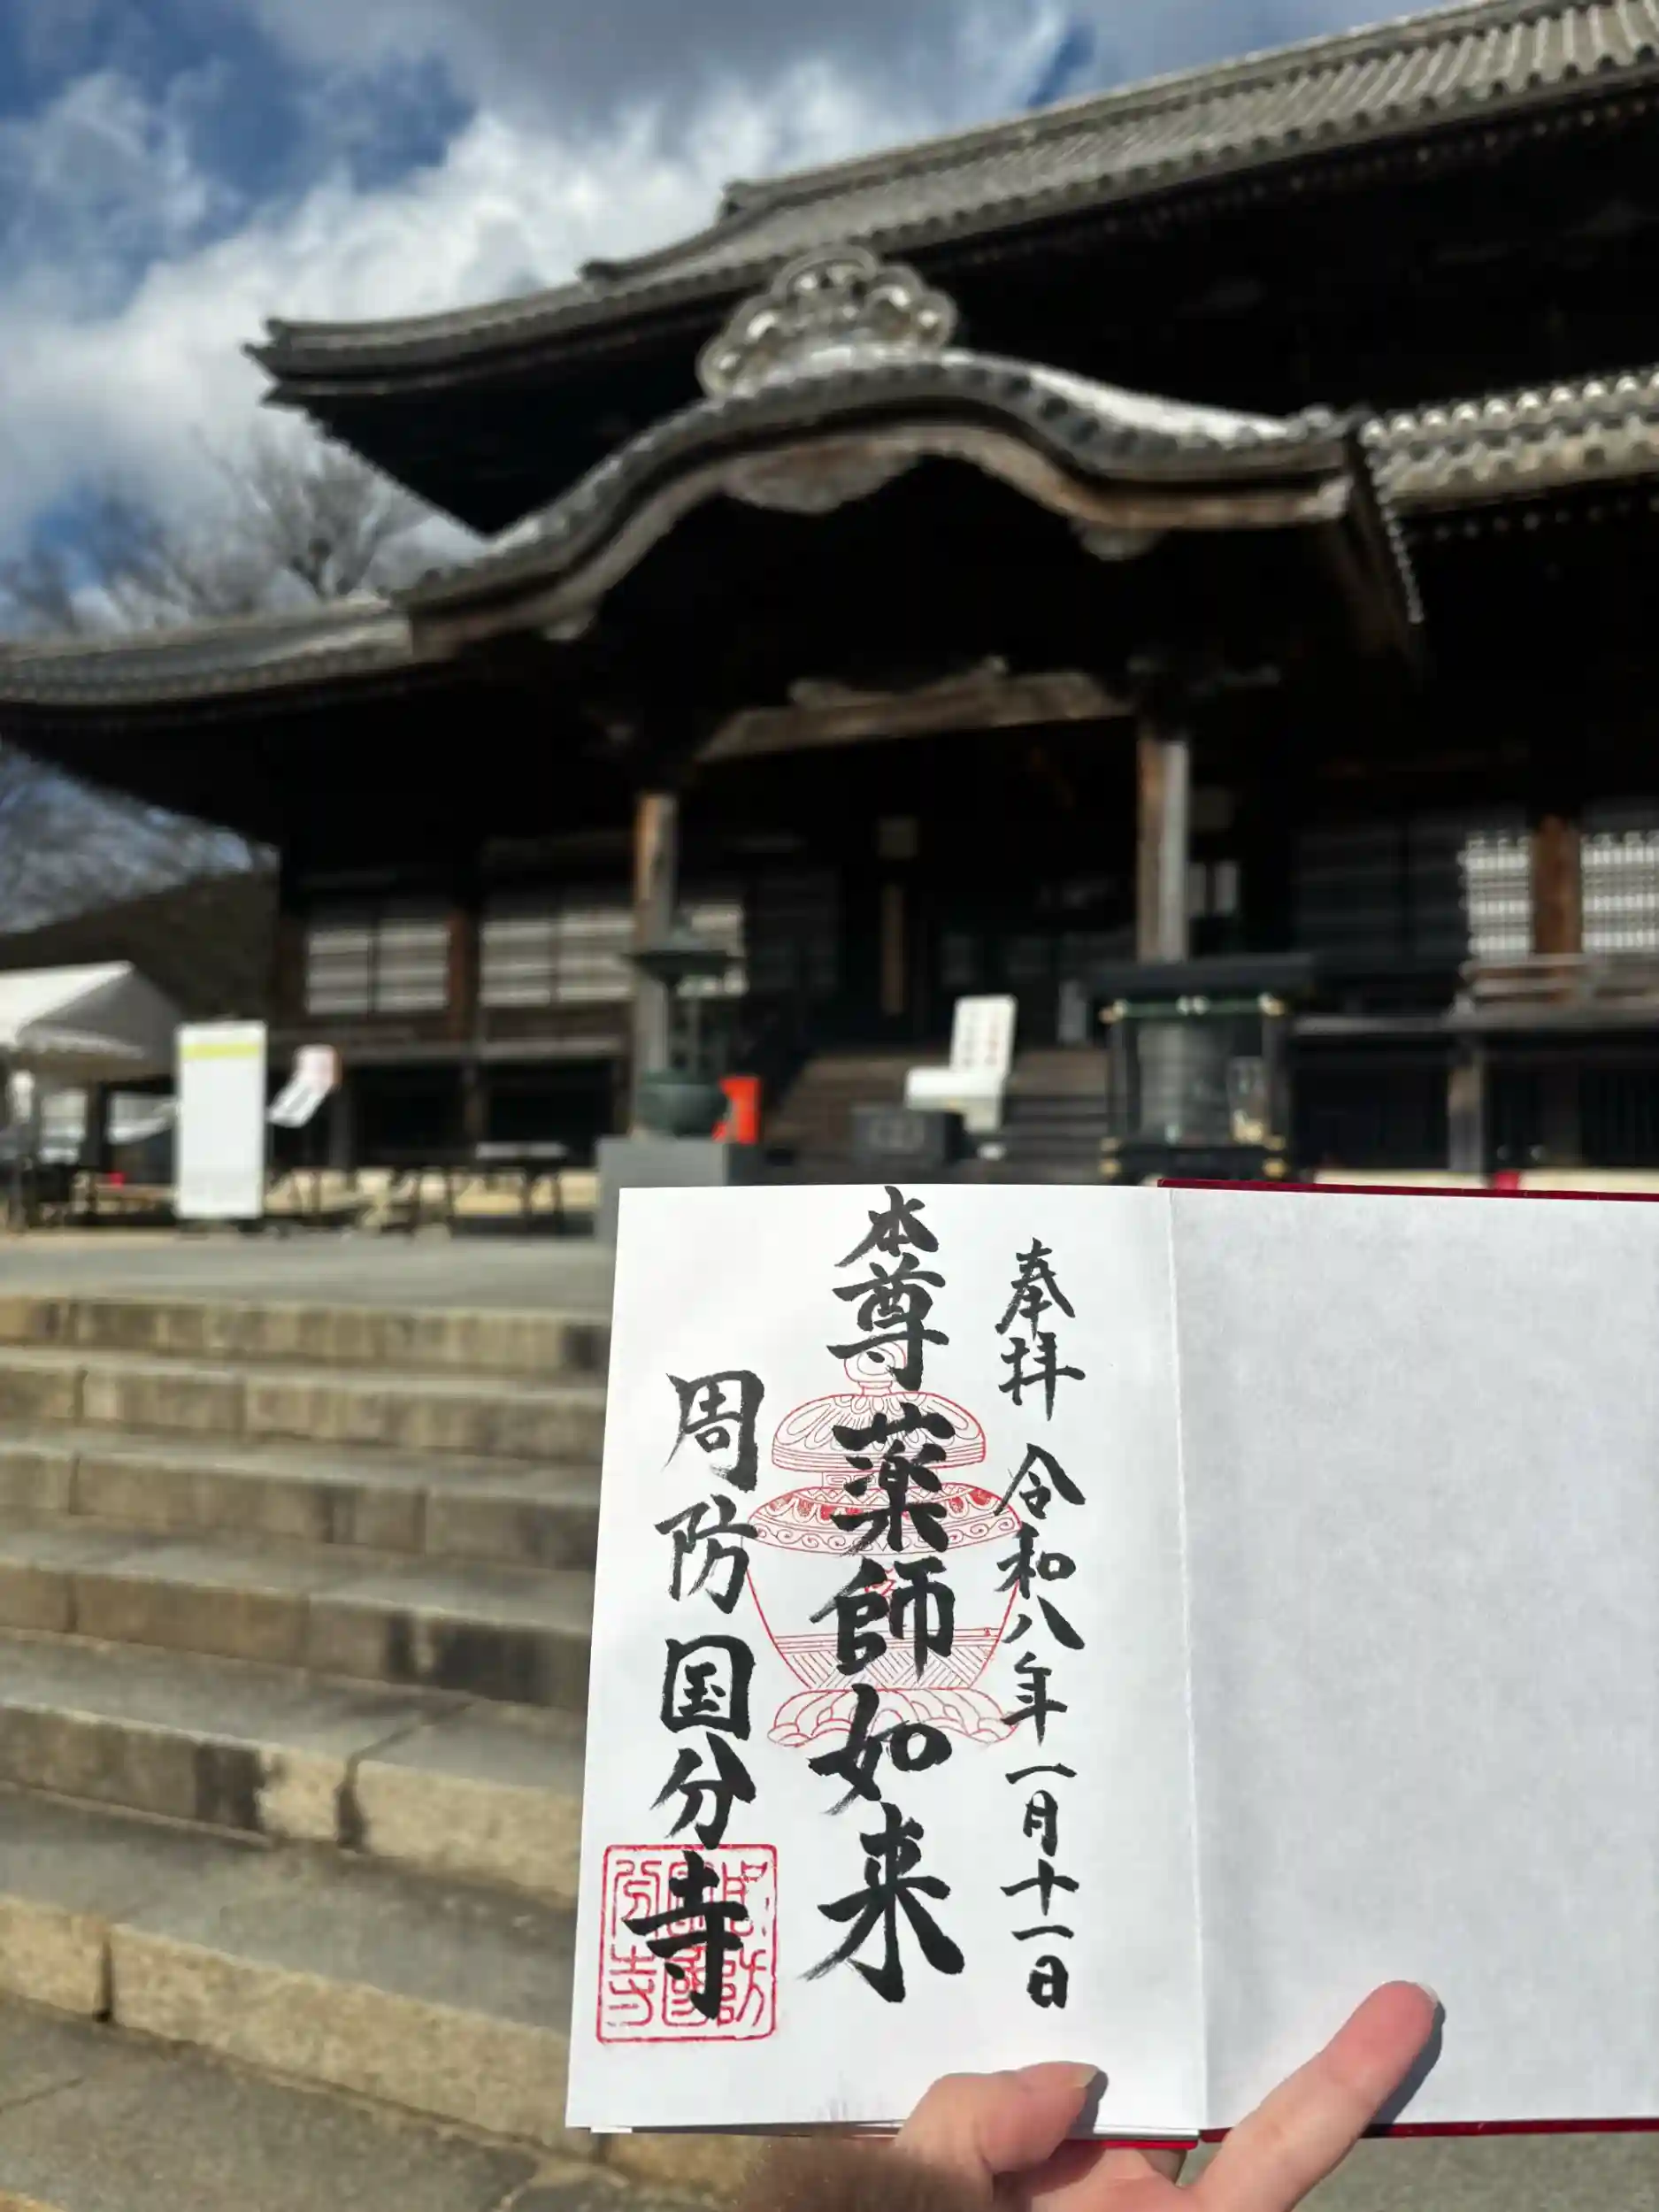 奉拝 令和八年一月十一日
本尊薬師如来
周防国分寺
周防國分寺